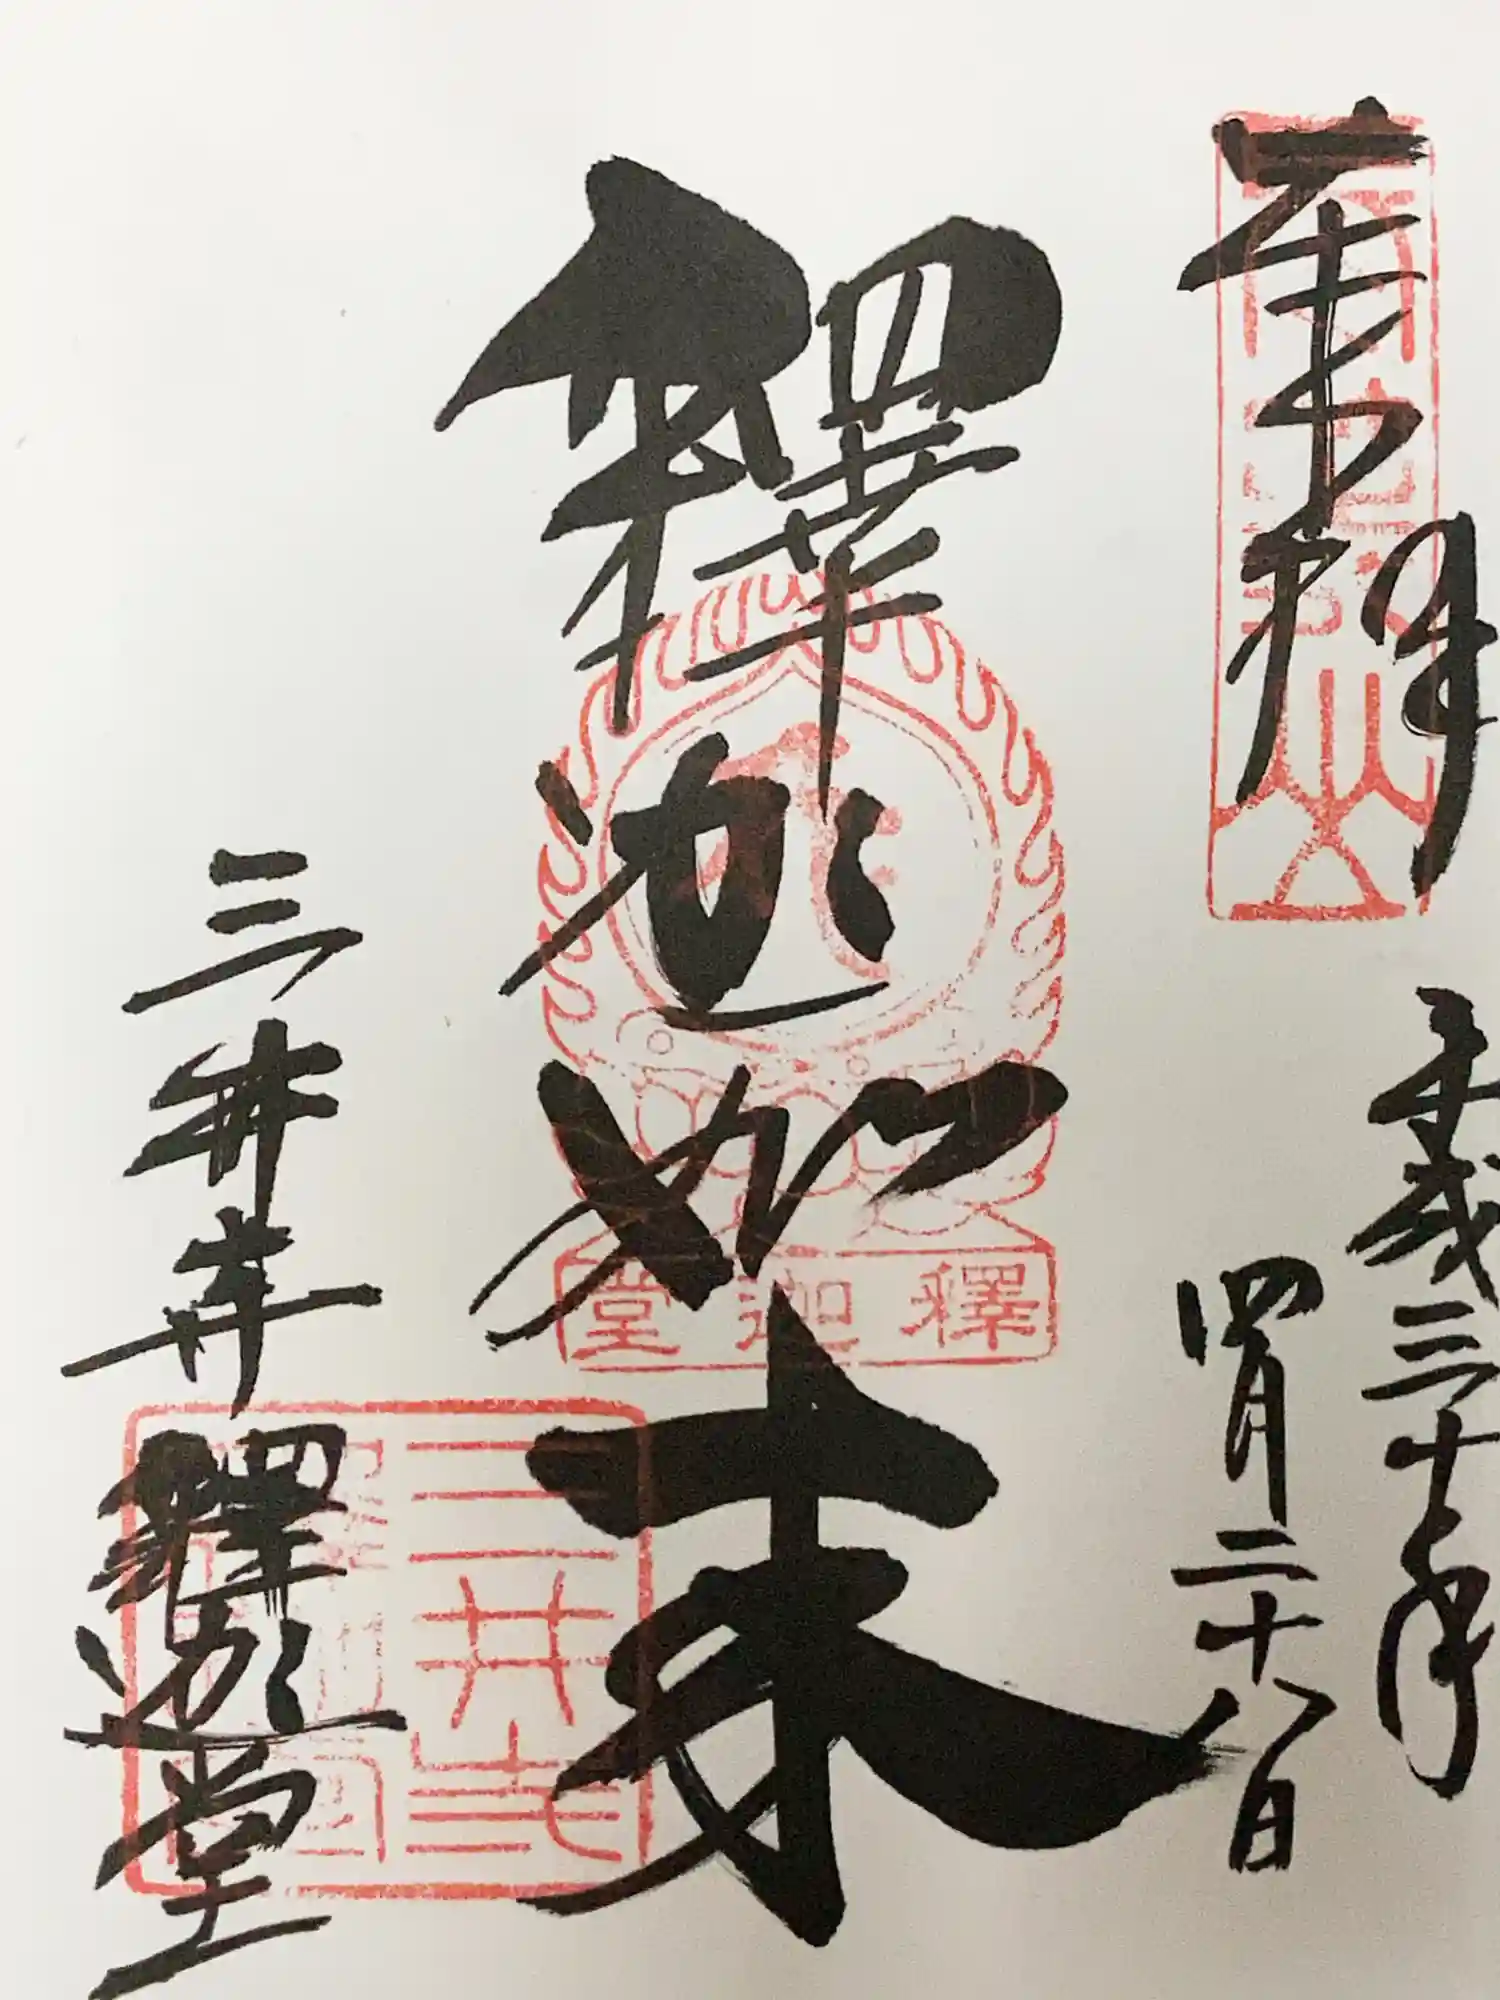 奉拝
平成三十年
四月二十八日
釋迦如来
釋迦堂
三井寺
三井寺 釋迦堂